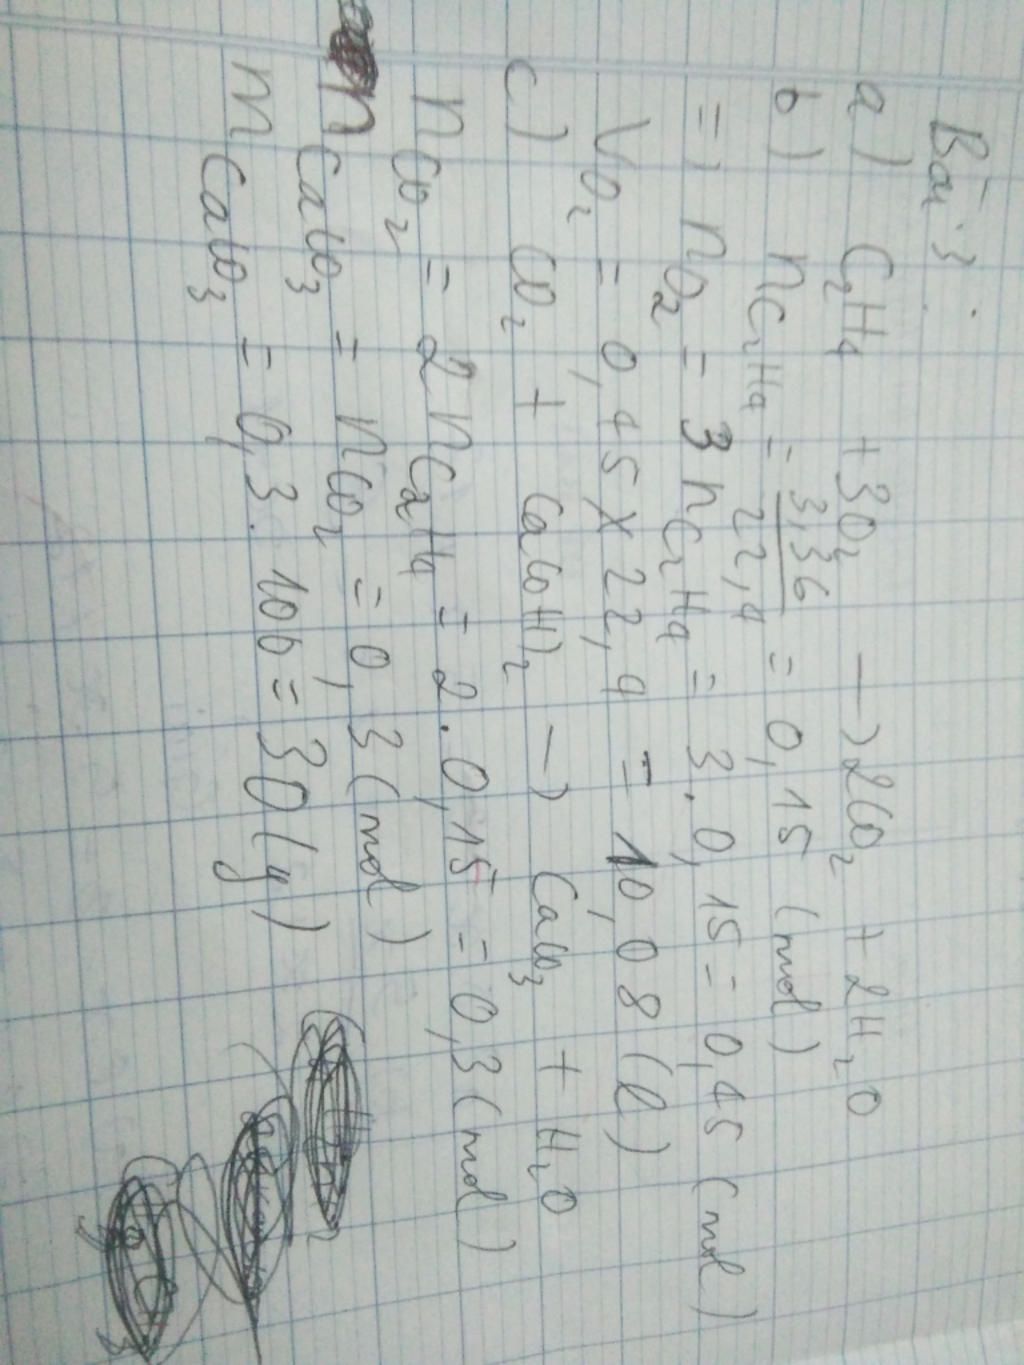 Bài 3:
a) C₂H₄ + 3O₂ → 2CO₂ + 2H₂O
b) nC₂H₄ = 3,36/22,4 = 0,15 (mol)
=) nO₂ = 3 nC₂H₄ = 3.0,15 = 0,45 (mol)
VO₂ = 0,45 x 22,4 = 10,08 (l)
c) CO₂ + Ca(OH)₂ → CaCO₃ + H₂O
nCO₂ = 2 nC₂H₄ = 2.0,15 = 0,3 (mol)
nCaCO₃ = nCO₂ = 0,3 (mol)
mCaCO₃ = 0,3.100 = 30 (g)